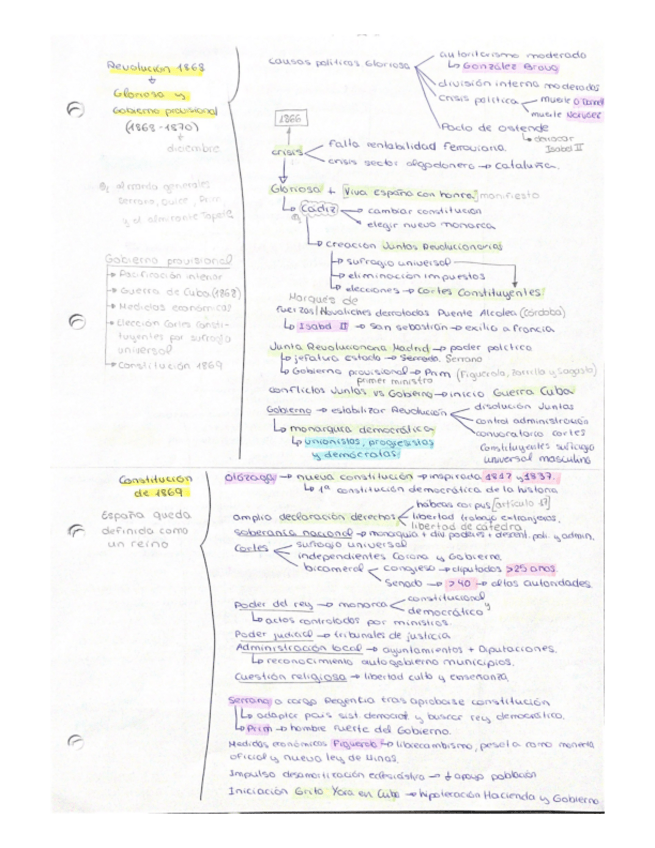 Revolución 1868
Gloriosa y
Gobierno provisional
(1868-1870)
diciembre
al mando generales
Serrano, Dulce, Prim
y el almirante Topete
Gobierno provisional
→ Pacificación interior
→ Guerra de Cuba (1868)
→ Medidas económicas
→ Elección Cortes Consti-
tuyentes por sufragio
universal
→ Constitución 1869
causas políticas Gloriosa
autoritarismo moderado
↳ González Bravo
división interna moderados
crisis política
muerte O'Donnell
muerte Narváez
Pacto de Ostende
↳ derrocar
Isabel II
1866
crisis
falta rentabilidad ferroviaria.
crisis sector algodonero → Cataluña.
Gloriosa + "Viva España con honra" manifiesto
↳ Cádiz
cambiar constitución
elegir nuevo monarca
↳ creación Juntas Revolucionarias
→ sufragio universal
→ eliminación impuestos
→ elecciones → Cortes Constituyentes
Marqués de
fuerzas Novaliches derrotadas Puente Alcolea (Córdoba)
↳ Isabel II → San Sebastián → exilio a Francia
Junta Revolucionaria Madrid → poder político
↳ jefatura estado → Serrano
↳ Gobierno provisional → Prim (Figuerola, Zorrilla y Sagasta)
primer ministro
conflictos Juntas vs Gobierno → inicio Guerra Cuba
Gobierno → estabilizar Revolución
disolución Juntas
control administración
convocatoria cortes
Constituyentes sufragio
universal masculino
↳ monarquía democrática
↳ unionistas, progresistas
y demócratas
Constitución
de 1869
España queda
definida como
un reino
Olózaga → nueva constitución → inspirada 1817 y 1837.
↳ 1ª constitución democrática de la historia
amplia declaración derechos
habeas corpus [artículo 17]
libertad trabajo extranjeros.
libertad de cátedra
soberanía nacional → monarquía + div poderes + descent. poli. y admin.
Cortes
sufragio universal
independientes Corona y Gobierno
bicameral
congreso → diputados >25 años
senado → >40 → altas autoridades
Poder del rey → monarca
constitucional
y
democrático
↳ actos controlados por ministros.
Poder judicial → tribunales de justicia
Administración local → ayuntamientos + diputaciones.
↳ reconocimiento autogobierno municipios.
Cuestión religiosa → libertad culto y enseñanza
Serrano a cargo Regencia tras aprobarse constitución
↳ adaptar país sist. democrat. y buscar rey democrático.
↳ Prim → hombre fuerte del Gobierno.
Medidas económicas Figuerola → librecambismo, peseta como moneda
oficial y nueva ley de Minas.
Impulso desamortización eclesiástica → ↓ apoyo población
Iniciación Grito Yara en Cuba → hipotecación Hacienda y Gobierno